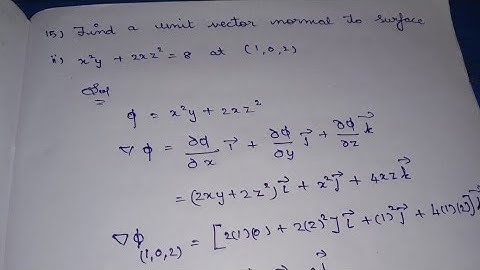 15) Find a unit vector normal to surface
ii) x²y + 2xz² = 8 at (1,0,2)
Sol
φ = x²y + 2xz²
∇φ = ∂φ/∂x i⃗ + ∂φ/∂y j⃗ + ∂φ/∂z k⃗
= (2xy + 2z²) i⃗ + x² j⃗ + 4xz k⃗
∇φ(1,0,2) = [2(1)(0) + 2(2)²] i⃗ + (1)² j⃗ + 4(1)(2)] k⃗